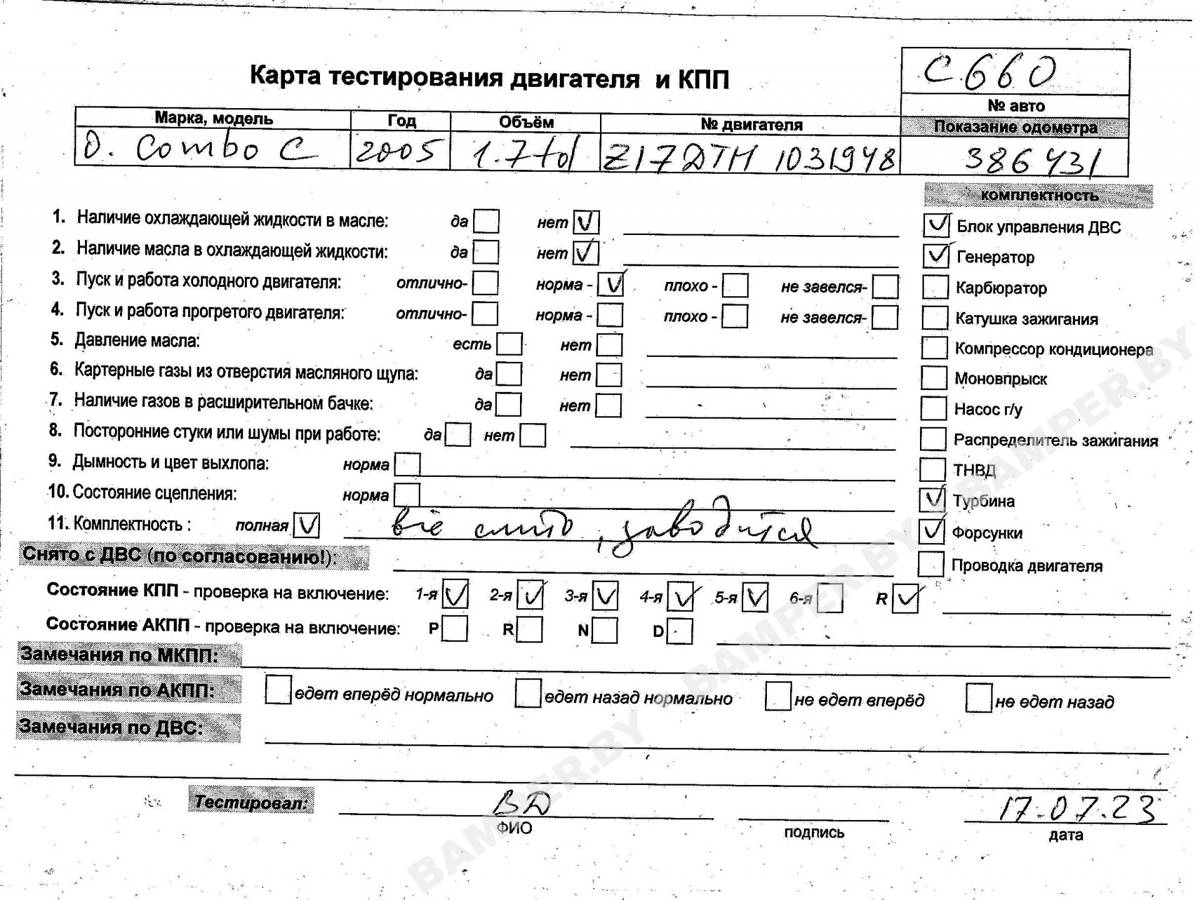 С660
Карта тестирования двигателя и КПП
№ авто
Марка, модель Год Объём № двигателя Показание одометра
O. Combo C 2005 1.7td Z17DTH 1031948 386431
комплектность
1. Наличие охлаждающей жидкости в масле: да нет ✓
✓ Блок управления ДВС
2. Наличие масла в охлаждающей жидкости: да нет ✓
✓ Генератор
3. Пуск и работа холодного двигателя: отлично- норма - ✓ плохо - не завелся-
Карбюратор
4. Пуск и работа прогретого двигателя: отлично- норма - плохо - не завелся-
Катушка зажигания
5. Давление масла: есть нет
Компрессор кондиционера
6. Картерные газы из отверстия масляного щупа: да нет
Моновпрыск
7. Наличие газов в расширительном бачке: да нет
Насос г/у
8. Посторонние стуки или шумы при работе: да нет
Распределитель зажигания
9. Дымность и цвет выхлопа: норма
ТНВД
10. Состояние сцепления: норма
✓ Турбина
11. Комплектность : полная ✓ все слито, заводится
✓ Форсунки
Снято с ДВС (по согласованию!):
Проводка двигателя
Состояние КПП - проверка на включение: 1-я ✓ 2-я ✓ 3-я ✓ 4-я ✓ 5-я ✓ 6-я R ✓
Состояние АКПП - проверка на включение: P R N D
Замечания по МКПП:
Замечания по АКПП: едет вперёд нормально едет назад нормально не едет вперёд не едет назад
Замечания по ДВС:
Тестировал: ВД 17.07.23
ФИО подпись дата
BAMPER.BY
BAMPER.BY
BAMPER.BY
BAMPER.BY